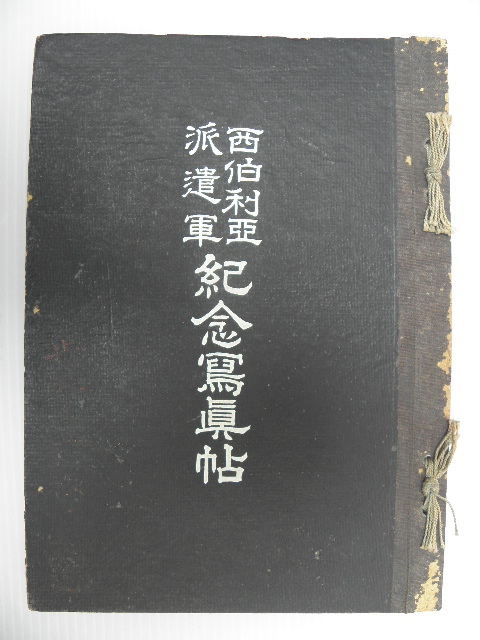 西伯利亞
派遣軍
紀念寫眞帖